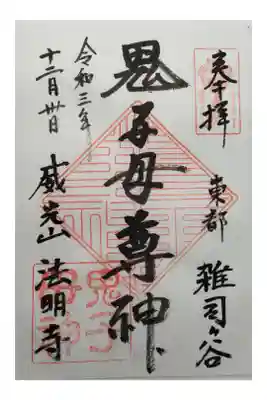 奉拝
東都 雑司ケ谷
鬼子母尊神
威光山 法明寺
令和三年
十二月卅日